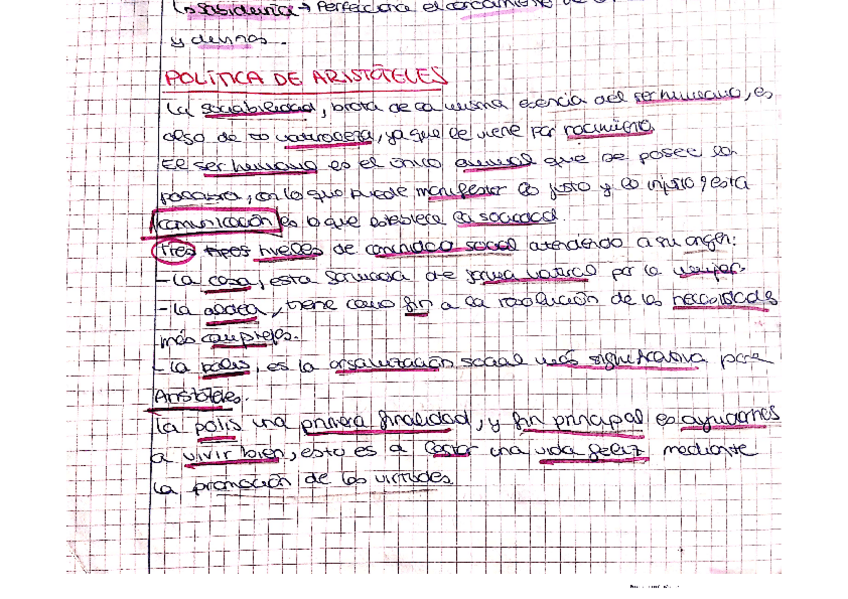 ↳ Sabiduría → Perfecciona el conocimiento de
y divinos.
POLÍTICA DE ARISTÓTELES
La sociabilidad, brota de la misma esencia del ser humano, es
algo de su naturaleza, ya que le viene por nacimiento.
El ser humano es el único animal que se posee la
palabra, con lo que puede manifestar lo justo y lo injusto y esta
comunicación es lo que establece la sociedad.
Tres tres niveles de comunidad social atendiendo a su origen:
- La casa, esta formada de forma natural por la
- La aldea, tiene como fin a la resolución de las necesidades
más complejas.
- La polis, es la organización social más significativa para
Aristóteles.
La polis una primera finalidad, y fin principal es ayudarnos
a vivir bien, esto es a lograr una vida feliz mediante
la promoción de las virtudes.